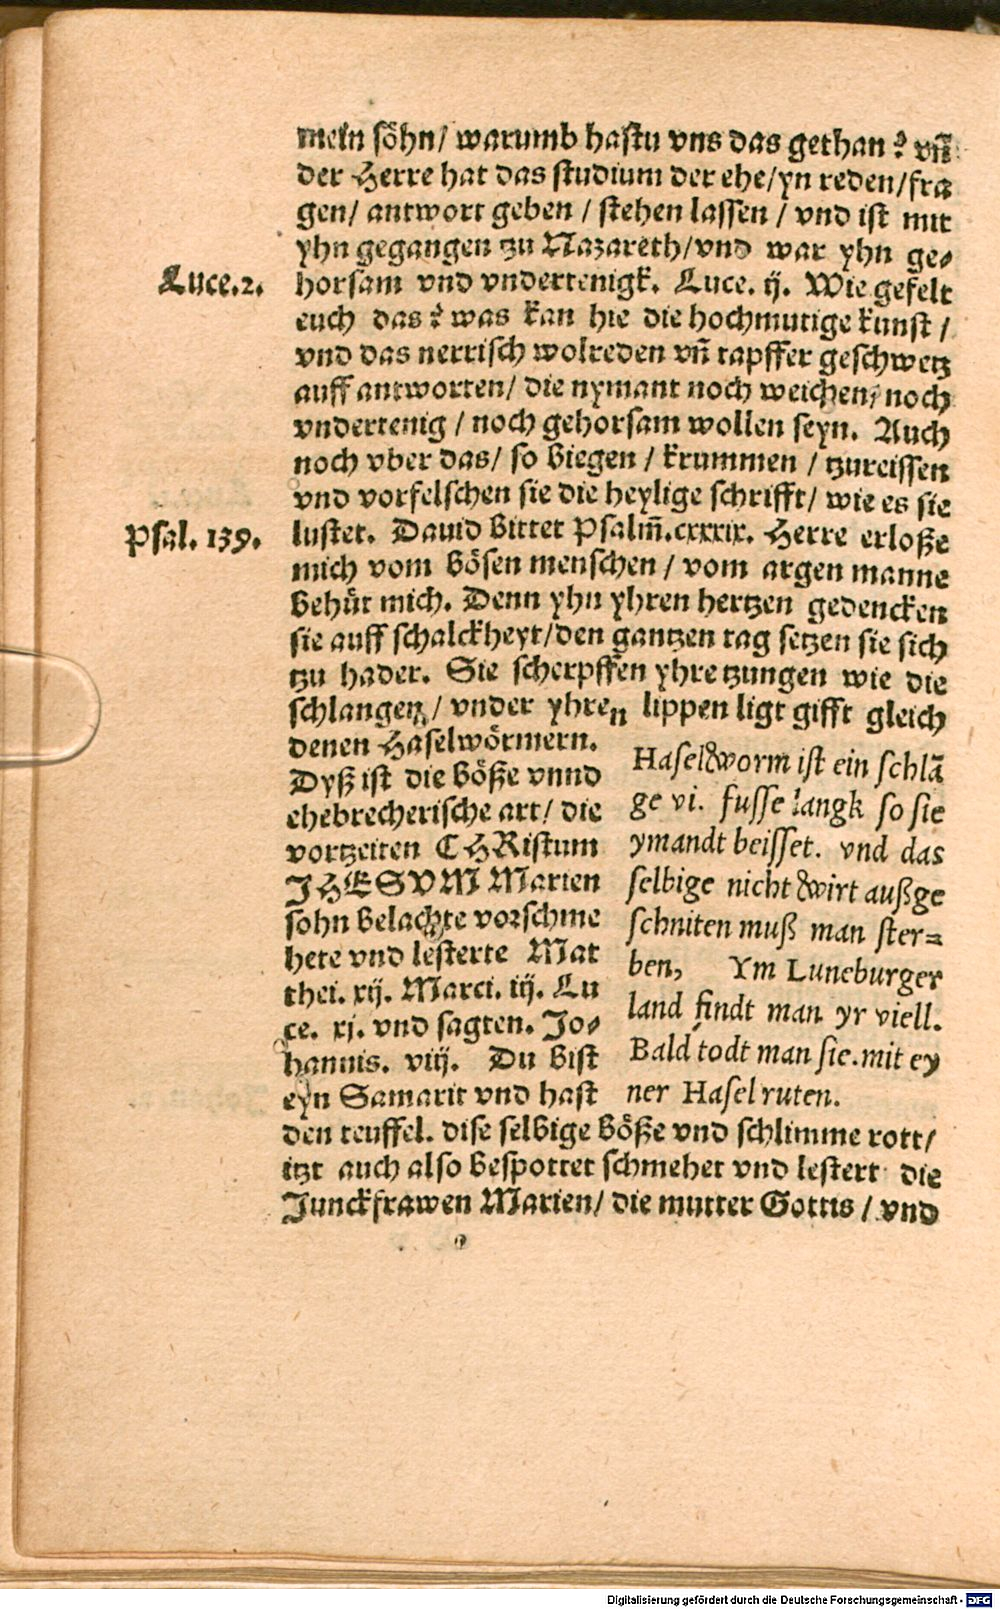 mein söhn/ warumb hastu vns das gethan? vñ
der Herre hat das studium der ehe/yn reden/fra
gen/ antwort geben / stehen lassen / vnd ist mit
yhn gegangen tzu Nazareth/vnd war yhn ge-
Luce.2.
horsam vnd vndertenigk. Luce. ij. Wie gefelt
euch das? was kan hie die hochmutige kunst /
vnd das nerrisch wolreden vñ tapffer geschwetz
auff antworten/ die nymant noch weichen, noch
vndertenig / noch gehorsam wollen seyn. Auch
noch vber das/ so biegen / krummen / tzureissen
vnd vorfelschen sie die heylige schrifft/ wie es sie
Psal. 139.
lustet. Dauid bittet Psalm̃.cxxxix. Herre erloße
mich vom bösen menschen / vom argen manne
behüt mich. Denn yhn yhren hertzen gedencken
sie auff schalckheyt/den gantzen tag setzen sie sich
tzu hader. Sie scherpffen yhre tzungen wie die
schlangen/ vnder yhren lippen ligt gifft gleich
denen Haselwörmern.
Dyß ist die böße vnnd
ehebrecherische art/ die
vortzeiten CHRistum
JHESVM Marien
sohn belachte vorschme
hete vnd lesterte Mat
thei. xij. Marci. iij. Lu
ce. xj. vnd sagten. Jo-
hannis. viij. Du bist
eyn Samarit vnd hast
Haselworm ist ein schlã
ge vi. fusse langk so sie
ymandt beisset. vnd das
selbige nicht wirt außge
schniten muß man ster=
ben, Ym Luneburger
land findt man yr viell.
Bald todt man sie.mit ey
ner Hasel ruten.
den teuffel. dise selbige böße vnd schlimme rott/
itzt auch also bespottet schmehet vnd lestert die
Junckfrawen Marien/ die mutter Gottis / vnd
Digitalisierung gefördert durch die Deutsche Forschungsgemeinschaft - DFG